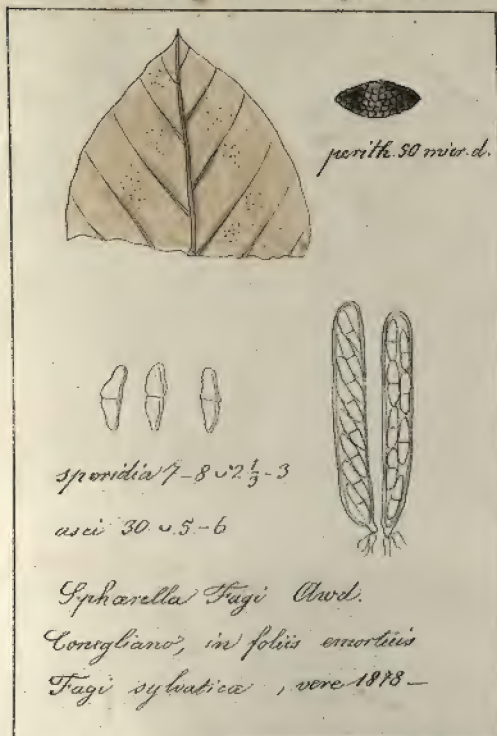 perith. 50 micr. d.
sporidia 7-8 ᴗ 2 1/3 - 3
asci 30 ᴗ 5-6
Sphærella Fagi Awd.
Conegliano, in foliis emortuis
Fagi sylvaticæ, vere 1878 —